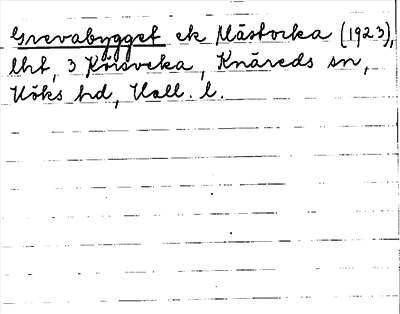 Grevabygget ek Mästocka (1923),
lht, 3 Körsveka, Knäreds sn,
Höks hd, Hall. l.